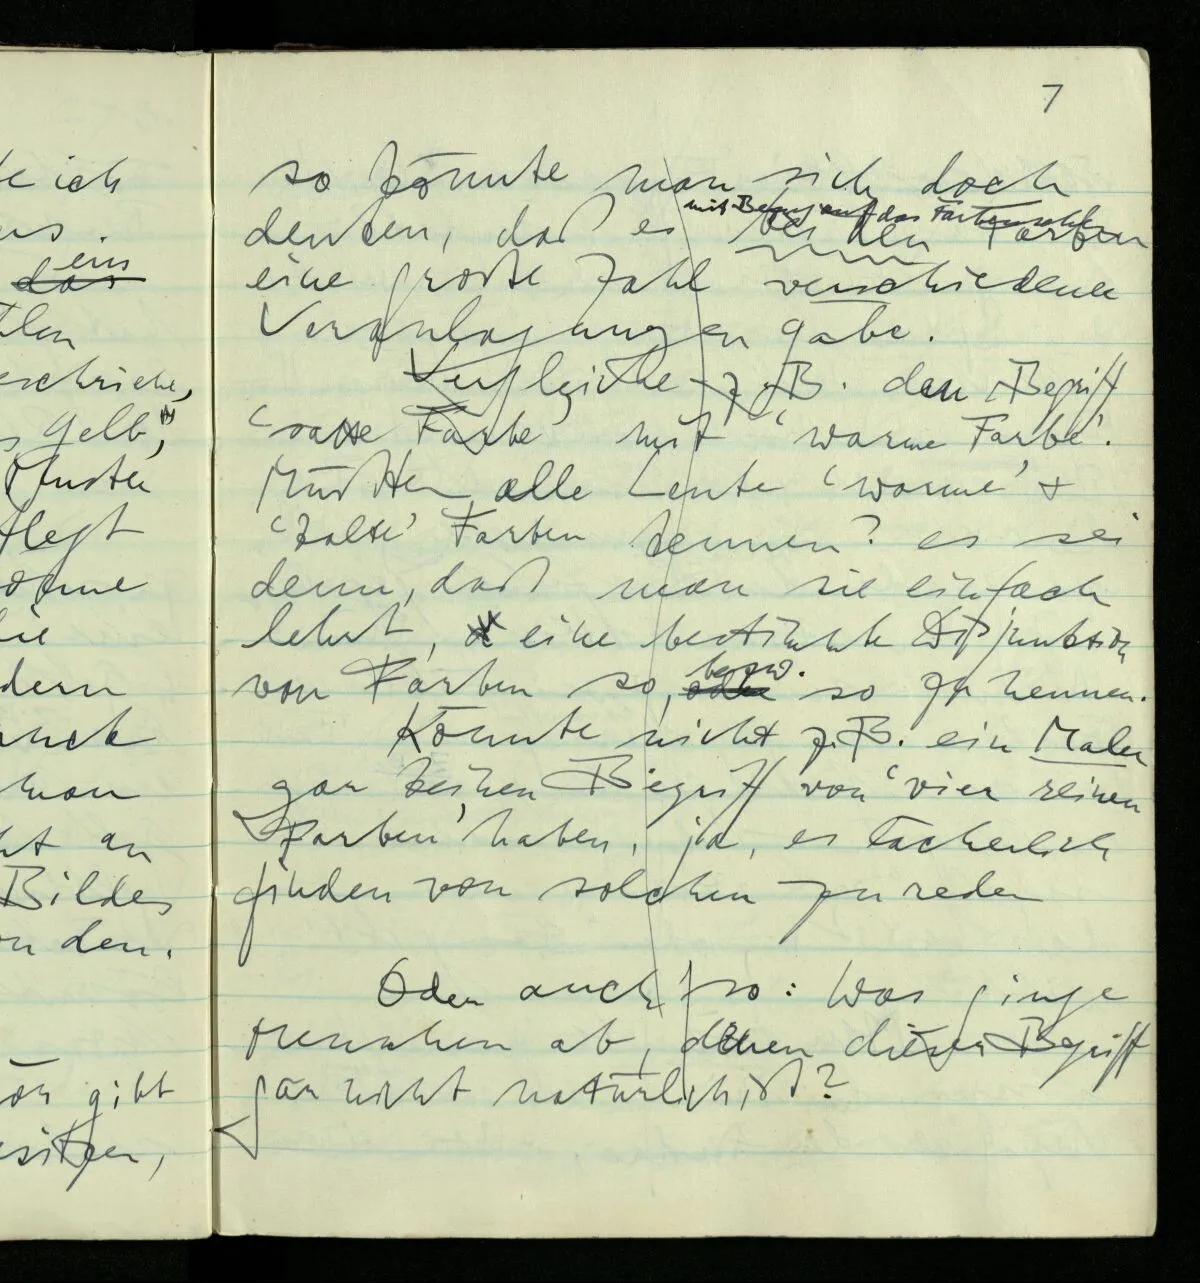 te ich
ens
das
schriebe,
gelb",
Muster
pflegt
dern
auch
man
ht an
Bildes
den.
gibt
sitzen,
7
so könnte man sich doch
mit Bezug auf das Farbensehen
denken, daß es bei den Farben
eine große Zahl verschiedene
Veranlagungen gäbe.
Vergleiche z.B. den Begriff
'satte Farbe' mit 'warme Farbe'.
Müßten alle Leute 'warme' +
'kalte' Farben kennen? es sei
denn, daß man sie einfach
lehrt, eine bestimmte Disjunktion
bezw.
von Farben so, oder so zu nennen.
Könnte nicht z.B. ein Maler
gar keinen Begriff von 'vier reinen
Farben' haben, ja, es lächerlich
finden von solchen zu reden
Oder auch so: Was ginge
Menschen ab, denen dieser Begriff
gar nicht natürlich ist?